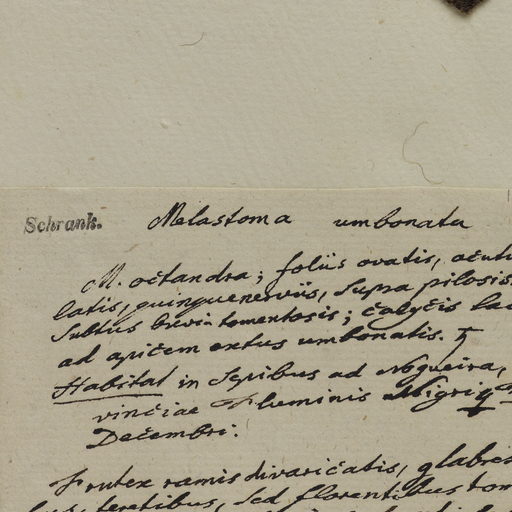 Schrank. Melastoma umbonata
M. octandra; foliis ovatis, acut
latis, quinquenerviis, supra pilosis
subtus brevin tomentosis; calycis la
ad apicem extus umbonatis. ♄
Habitat in Sepibus ad Nogueira,
vinciae Fluminis Nigri
Decembri.
Frutex ramis divaricatis, glabres
bus, teretibus, sed florentibus tom